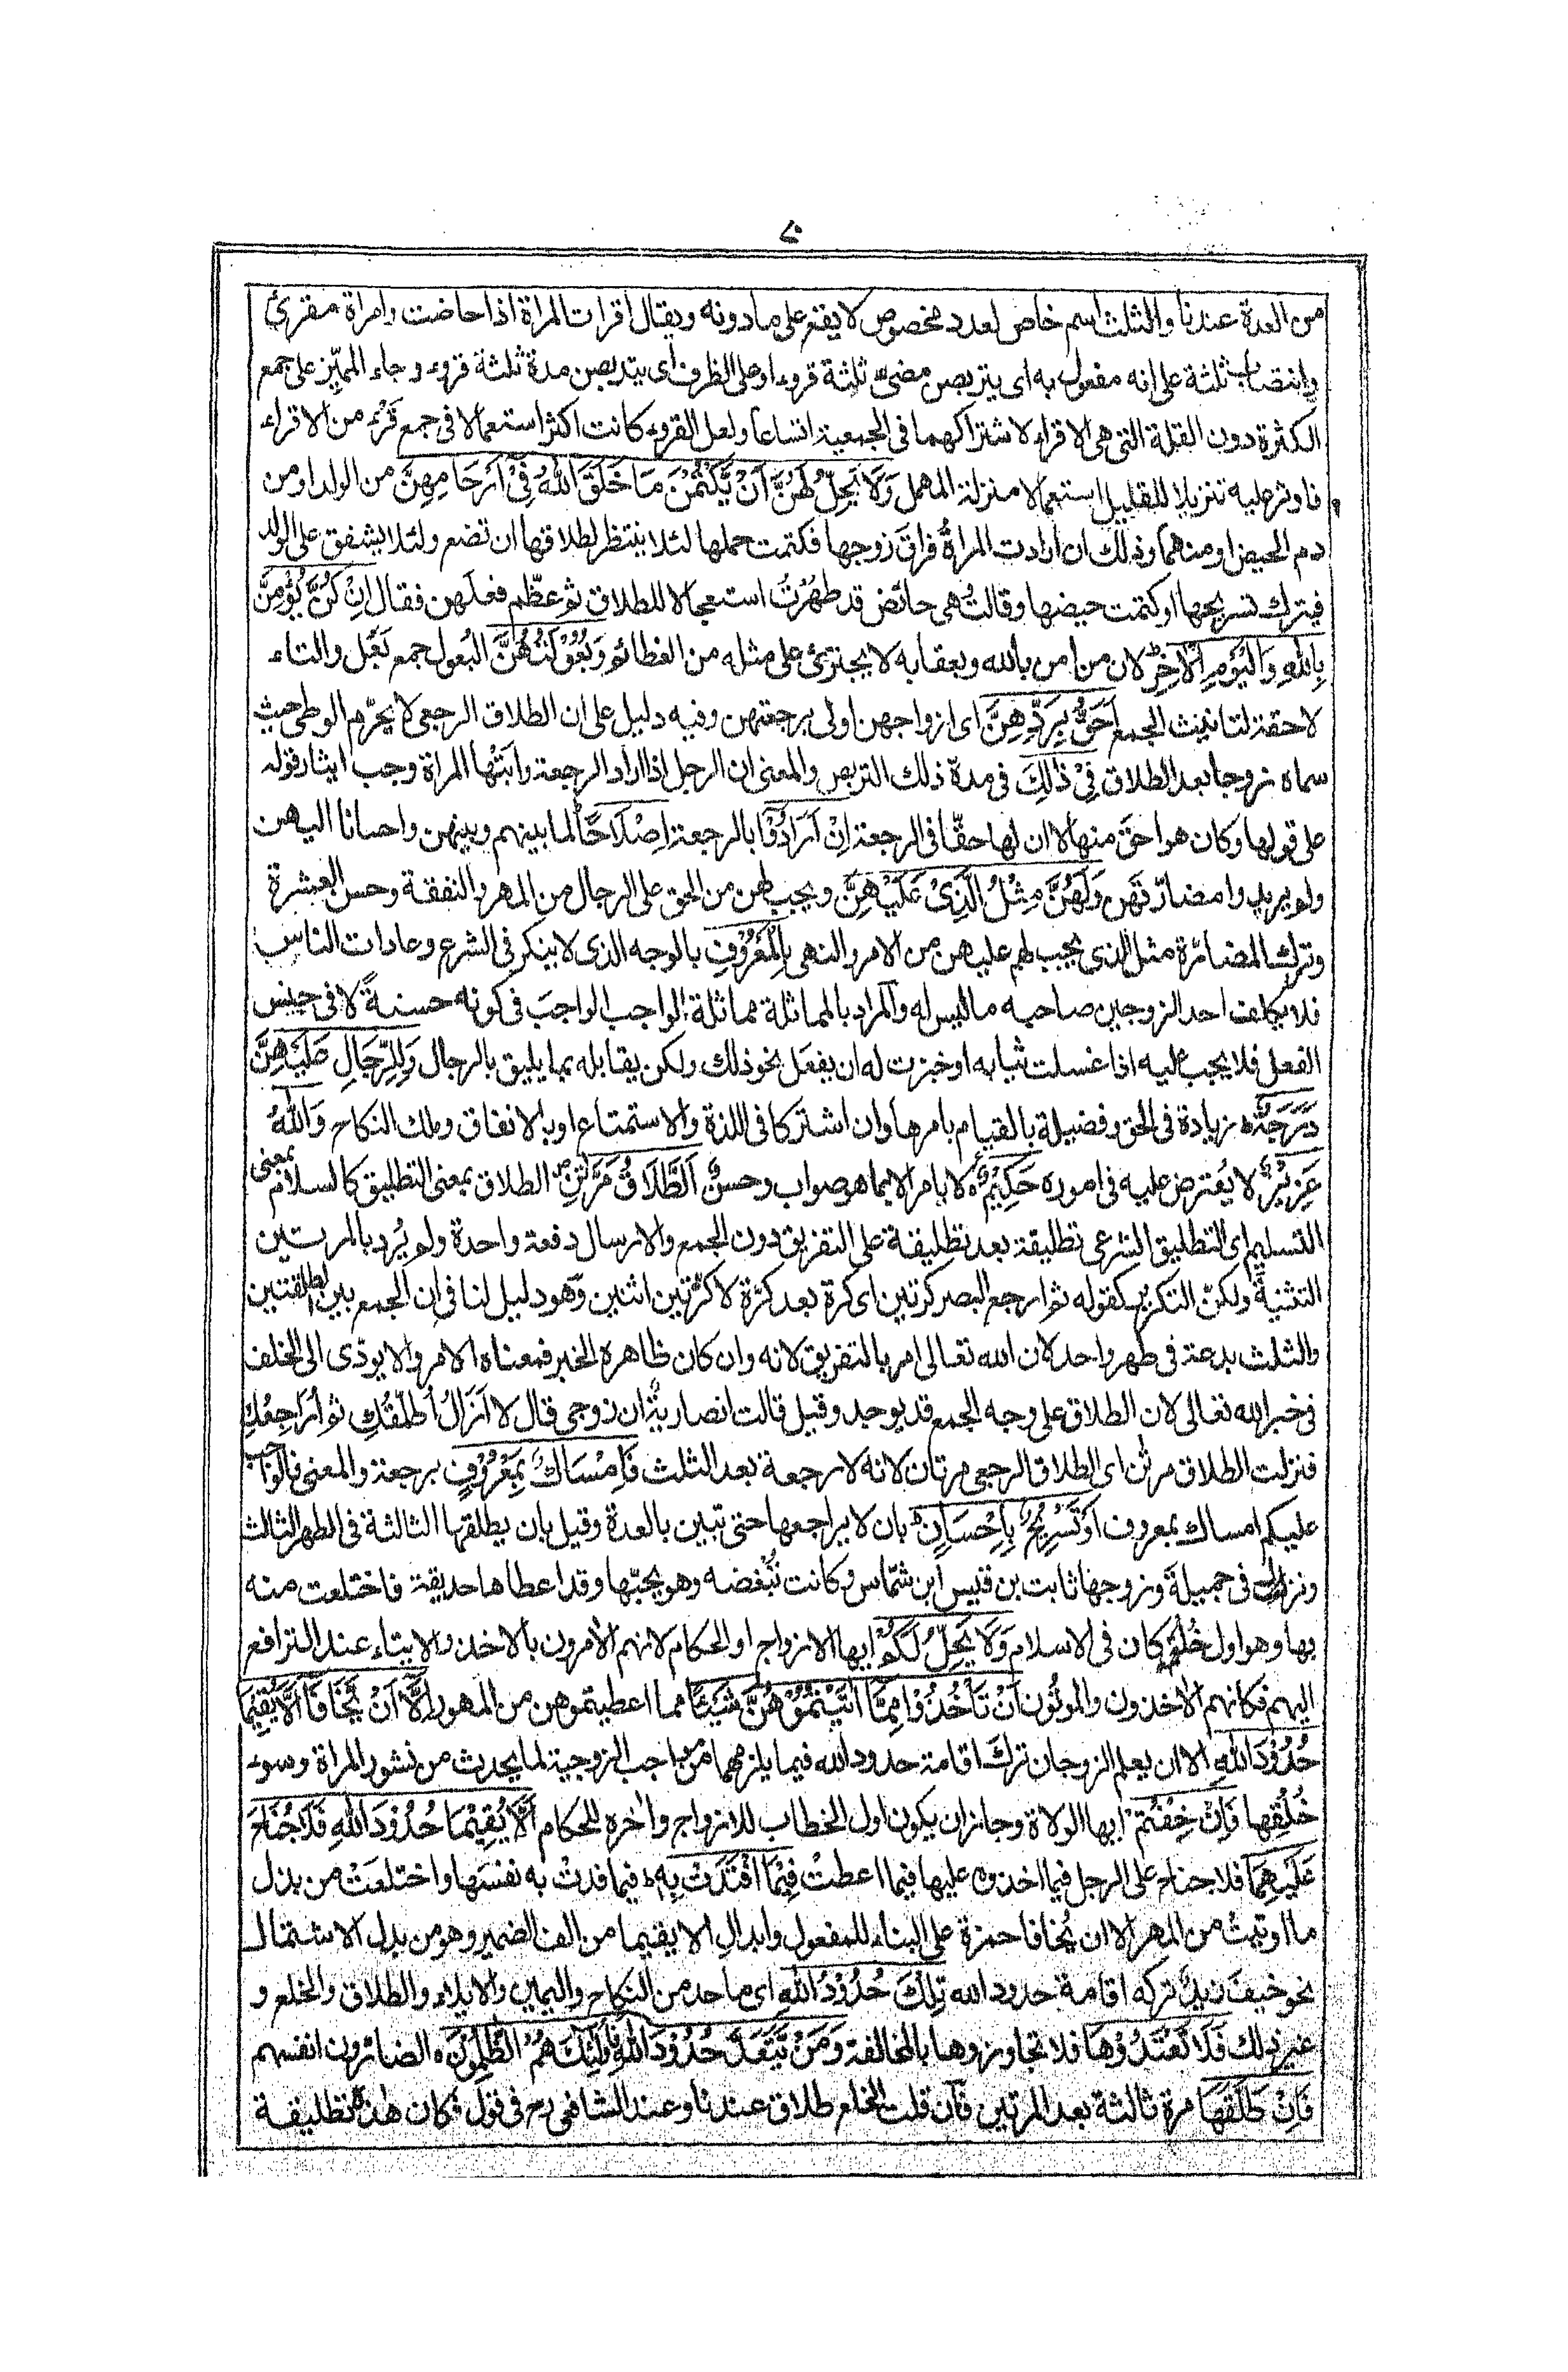 ٧٠
من العدة عندنا والثلث اسم خاص لعدد مخصوص لا يقع على ما دونه ويقال اقرات المراة اذا حاضت وامراة مقرئ
وانتصاب ثلثة على انه مفعول به اى يتربصن مضى ثلثة قروء او على الظرف اى يتربصن مدة ثلثة قروء وجاء المميز على جمع
الكثرة دون القلة التى هى الاقراء لاشتراكهما فى الجمعية اتساعا ولعل القروء كانت اكثر استعمالا فى جمع قرء من الاقراء
فاوثر عليه تنزيلا للقليل استعمالا منزلة المهمل وَلَا يَحِلُّ لَهُنَّ اَنْ يَّكْتُمْنَ مَا خَلَقَ اللّٰهُ فِىْ اَرْحَامِهِنَّ من الولد او من
دم الحيض او منهما وذلك ان ارادت المراة فراق زوجها فكتمت حملها لئلا ينتظر لطلاقها ان تضع ولئلا يشفق على الولد
فيترك تسريحها او كتمت حيضها وقالت هى حائض قد طهُرْتُ استعجالا للطلاق ثم عظّم فعلهن فقال اِنْ كُنَّ يُؤْمِنَّ
بِاللّٰهِ وَالْيَوْمِ الْاٰخِرِ لان من امن بالله وبعقابه لا يجترئ على مثله من العظائم وَبُعُوْلَتُهُنَّ البعول جمع بَعْل والتاء
لاحقة لتانيث الجمع اَحَقُّ بِرَدِّهِنَّ اى ازواجهن اولى برجعتهن وفيه دليل على ان الطلاق الرجعى لا يحرّم الوطى حيث
سماه زوجا بعد الطلاق فِىْ ذٰلِكَ فى مدة ذلك التربص والمعنى ان الرجل اذا اراد الرجعة وابتها المراة وجب ايثار قوله
على قولها وكان هو احق منها لا ان لها حقّا فى الرجعة اِنْ اَرَادُوْا بالرجعة اِصْلَاحًا لما بينهم وبينهن واحسانا اليهن
ولم يريدوا مضارّتهن وَلَهُنَّ مِثْلُ الَّذِىْ عَلَيْهِنَّ ويجب لهن من الحق على الرجال من المهر والنفقة وحسن العشرة
وترك المضارّة مثل الذى يجب لهم عليهن من الامر والنهى بِالْمَعْرُوْفِ بالوجه الذى لا ينكر فى الشرع وعادات الناس
فلا يكلف احد الزوجين صاحبه ما ليس له والمراد بالمماثلة مماثلة الواجب الواجبَ فى كونه حسنةً لا فى جنس
الفعل فلا يجب عليه اذا غسلت ثيابه او خبزت له ان يفعل نحو ذلك ولكن يقابله بما يليق بالرجال وَلِلرِّجَالِ عَلَيْهِنَّ
دَرَجَةٌ زيادة فى الحق وفضيلة بالقيام بامرها وان اشتركا فى اللذة والاستمتاع او بالانفاق وملك النكاح وَاللّٰهُ
عَزِيْزٌ لا يُعترض عليه فى اموره حَكِيْمٌ لا يامر الا بما هو صواب وحسن اَلطَّلَاقُ مَرَّتٰنِ الطلاق بمعنى التطليق كالسلام بمعنى
التسليم اى التطليق الشرعى تطليقة بعد تطليقة على التفريق دون الجمع والارسال دفعة واحدة ولم يُرد بالمرتين
التثنيةَ ولكنّ التكرير كقوله ثم ارجع البصر كرتين اى كرة بعد كرّة لا كرّتين اثنتين وهو دليل لنا فى ان الجمع بين الطلقتين
والثلث بدعة فى طهر واحد لان الله تعالى امر بالتفريق لانه وان كان ظاهره الخبر فمعناه الامر والا يودى الى الخلف
فى خبر الله تعالى لان الطلاق على وجه الجمع قد يوجد وقيل قالت انصارية ان زوجى قال لا ازالُ اُطلّقُكِ ثم اُرَاجِعُكِ
فنزلت الطلاق مرتٰن اى الطلاق الرجعى مرتان لانه لا رجعة بعد الثلث فَاِمْسَاكٌ بِمَعْرُوْفٍ برجعة والمعنى فالواجب
عليكم امساك بمعروف اَوْ تَسْرِيْحٌ بِاِحْسَانٍ بان لا يراجعها حتى تبين بالعدة وقيل بان يطلقها الثالثة فى الطهر الثالث
ونزلت فى جميلة وزوجها ثابت بن قيس ابن شمّاس وكانت تُبغضه وهو يحبّها وقد اعطاها حديقة فاختلعت منه
بها وهو اول خُلْعٍ كان فى الاسلام وَلَا يَحِلُّ لَكُمْ ايها الازواج او الحكام لانهم الاٰمرون بالاخذ والايتاء عند الترافع
اليهم فكانهم الاٰخذون والموتُون اَنْ تَاْخُذُوْا مِمَّا اٰتَيْتُمُوْهُنَّ شَيْئًا مما اعطيتموهن من المهور اِلَّا اَنْ يَّخَافَا اَلَّا يُقِيْمَا
حُدُوْدَ اللّٰهِ الا ان يعلم الزوجان ترك اقامة حدود الله فيما يلزمهما من مواجب الزوجية لما يحدث من نشوز المراة وسوء
خُلُقِها فَاِنْ خِفْتُمْ ايها الولاة وجاز ان يكون اول الخطاب للازواج واٰخره للحكام اَلَّا يُقِيْمَا حُدُوْدَ اللّٰهِ فَلَا جُنَاحَ
عَلَيْهِمَا فلا جناح على الرجل فيما اخذ ولا عليها فيما اعطت فِيْمَا افْتَدَتْ بِهٖ فيما فدتْ به نفسها واختلعتْ من بذل
ما اوتيتْ من المهر الا ان يُخافا حمزة على البناء للمفعول وابدالِ الا يقيما من الف الضمير وهو من بدل الاشتمال
نحو خيفَ زيدٌ تركه اقامة حدود الله تِلْكَ حُدُوْدُ اللّٰهِ اى ما حد من النكاح واليمين والايلاء والطلاق والخلع و
غير ذلك فَلَا تَعْتَدُوْهَا فلا تجاوزوها بالمخالفة وَمَنْ يَّتَعَدَّ حُدُوْدَ اللّٰهِ فَاُولٰئِكَ هُمُ الظّٰلِمُوْنَ الضارّون انفسهم
فَاِنْ طَلَّقَهَا مرة ثالثة بعد المرتين فان قلت الخلع طلاق عندنا وعند الشافعى رح فى قول فكان هذه تطليقة